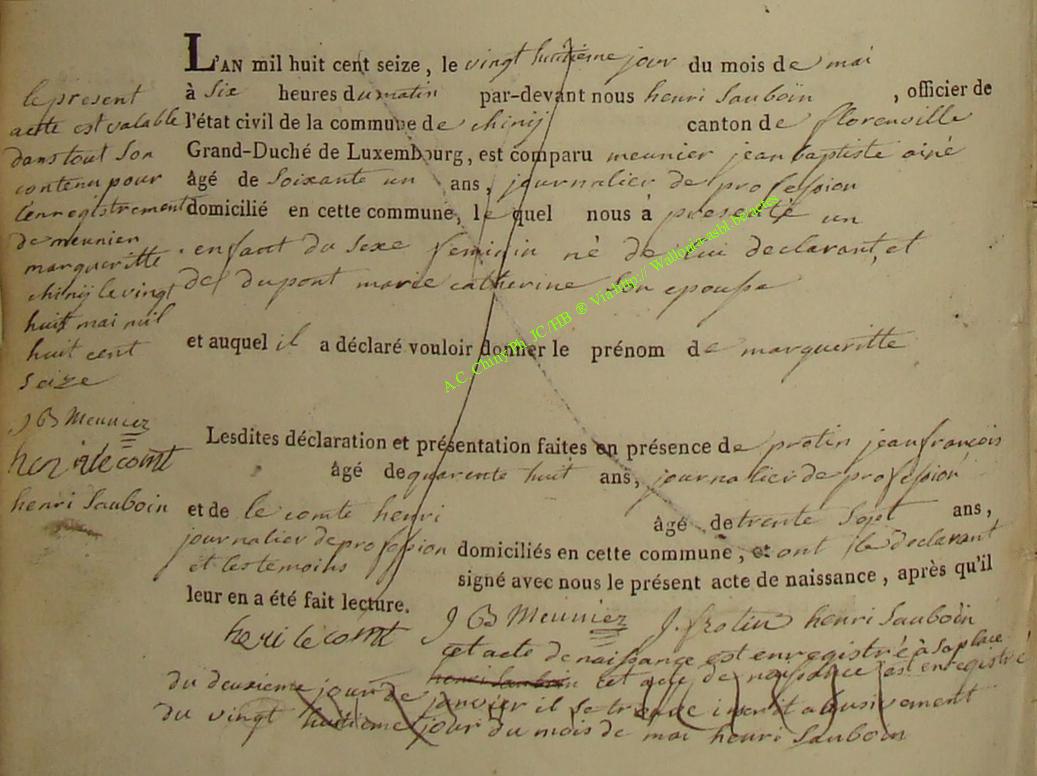 L'AN mil huit cent seize, le vingt huitieme jour du mois de mai
à Six heures du matin par-devant nous henri Sauboin, officier de
l'état civil de la commune de chinij canton de florenville
Grand-Duché de Luxembourg, est comparu meunier jean baptiste ainé
âgé de Soixante un ans, journalier de profession
domicilié en cette commune, le quel nous à presenté un
enfant du Sexe feminin né de lui declarant, et
de dupont marie catherine Son epouse
et auquel il a déclaré vouloir donner le prénom de margueritte
Lesdites déclaration et présentation faites en présence de protin jean françois
âgé de quarente huit ans, journalier de profession
et de le comte henri âgé de trente Sept ans,
journalier de profession domiciliés en cette commune, et ont le declarant
et les temoins signé avec nous le présent acte de naissance, après qu'il
leur en a été fait lecture.
henri le comt J B Meunier J. frotin henri Sauboin
cet acte de naissance est enregistré à Sa place
henri Sauboin cet acte de naissance est enregistré
du deuxieme jour de janvier il Se trouve inscrit abusivement
du vingt huitieme jour du mois de mai henri Sauboin
le present
acte est valable
dans tout Son
contenu pour
l'enregistrement
de meunier
margueritte
chinij le vingt
huit mai mil
huit cent
Seize
J B Meunier
henri le comt
henri Sauboin
A.C. Chiny Ph. JC/HB ® Via http:// Wallonia-asbl.be